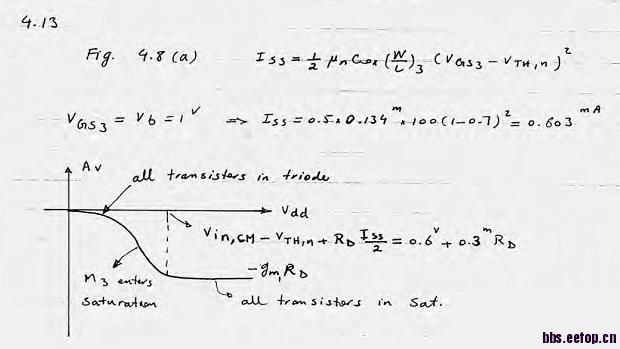 4.13
Fig. 4.8 (a) I_SS = 1/2 μnCox (W/L)_3 (V_GS3 - V_TH,n)^2
V_GS3 = Vb = 1^V => I_SS = 0.5 × 0.134^m × 100 (1-0.7)^2 = 0.603^mA
Av
all transistors in triode
Vdd
Vin,CM - V_TH,n + R_D I_SS/2 = 0.6^V + 0.3^m R_D
M3 enters
saturation
-gm1 R_D
all transistors in sat.
bbs.eetop.cn